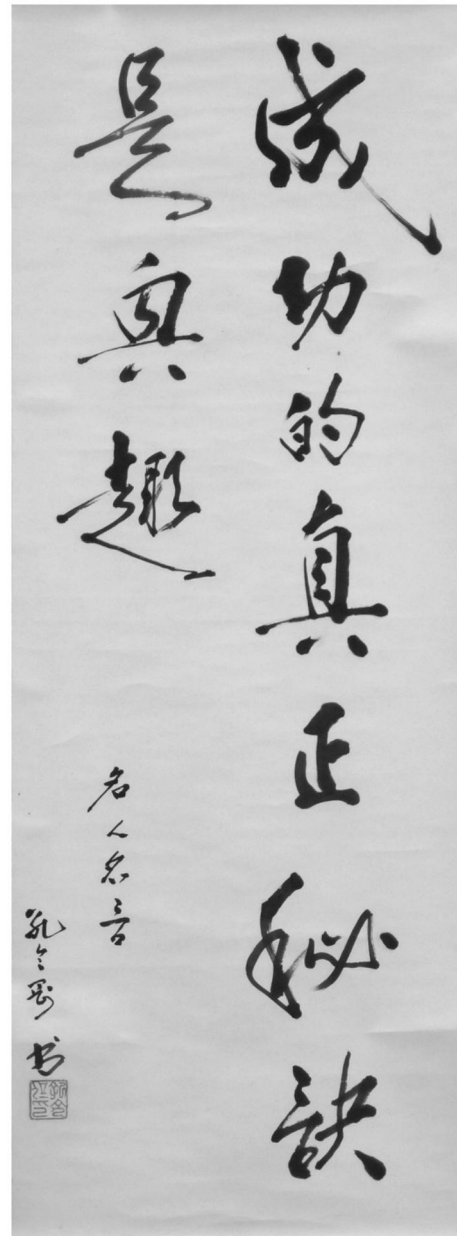 成功的真正秘訣
是興趣
名人名言
孔令剛书